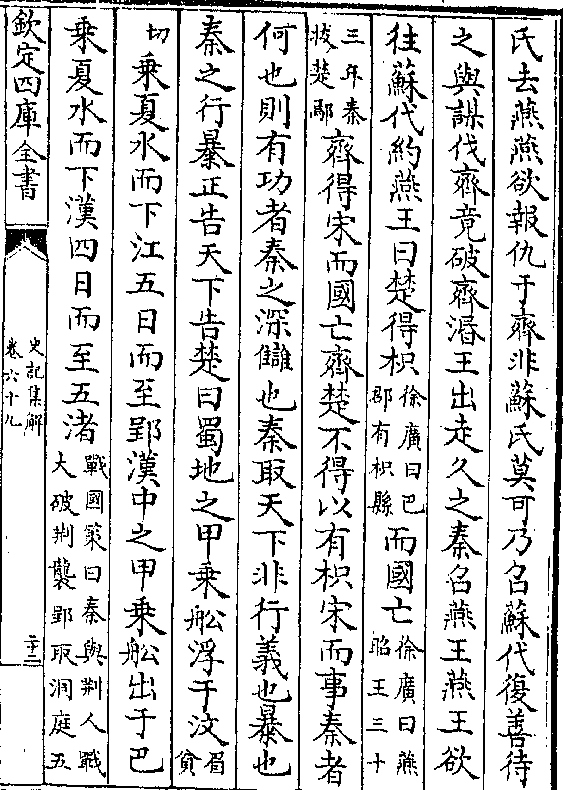 氏去燕燕欲報仇于齊非蘇氏莫可乃召蘇代復善待
之與謀伐齊竟破齊湣王出走久之秦召燕王燕王欲
往蘇代約燕王曰楚得枳徐廣曰巴郡有枳縣而國亡徐廣曰燕昭王三十
三年秦拔楚鄢齊得宋而國亡齊楚不得以有枳宋而事秦者
何也則有功者秦之深讎也秦取天下非行義也暴也
秦之行暴正告天下告楚曰蜀地之甲乗舩浮于汶眉貧
切乗夏水而下江五日而至郢漢中之甲乗舩出于巴
乗夏水而下漢四日而至五渚戰國策曰秦與荆人戰大破荆襲郢取洞庭五
欽定四庫全書
史記集解
卷六十九
二十二